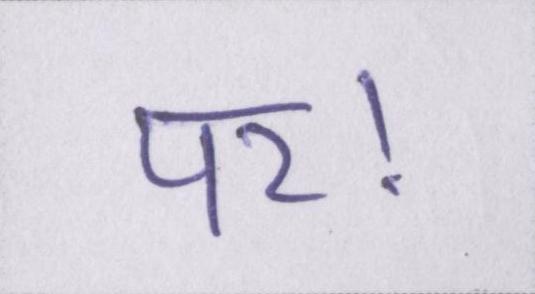 पर!